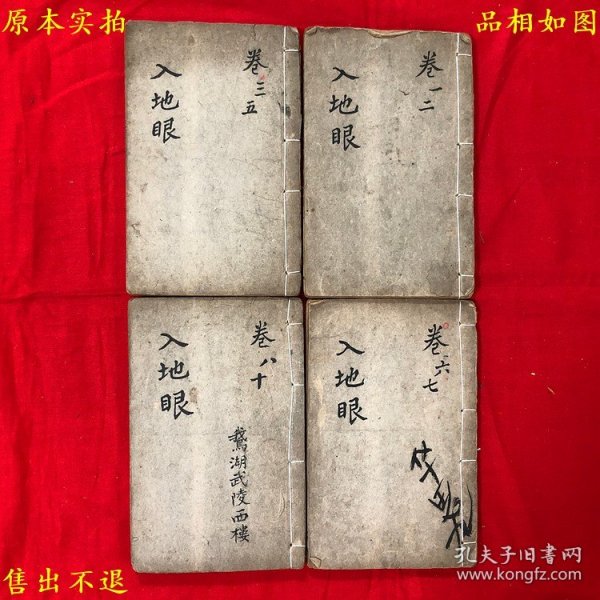 原本实拍
品相如图
卷三五
入地眼
卷一二
入地眼
卷八十
入地眼
鵞湖武陵西樓
卷六七
入地眼
售出不退
孔夫子旧书网
www.kongfz.com